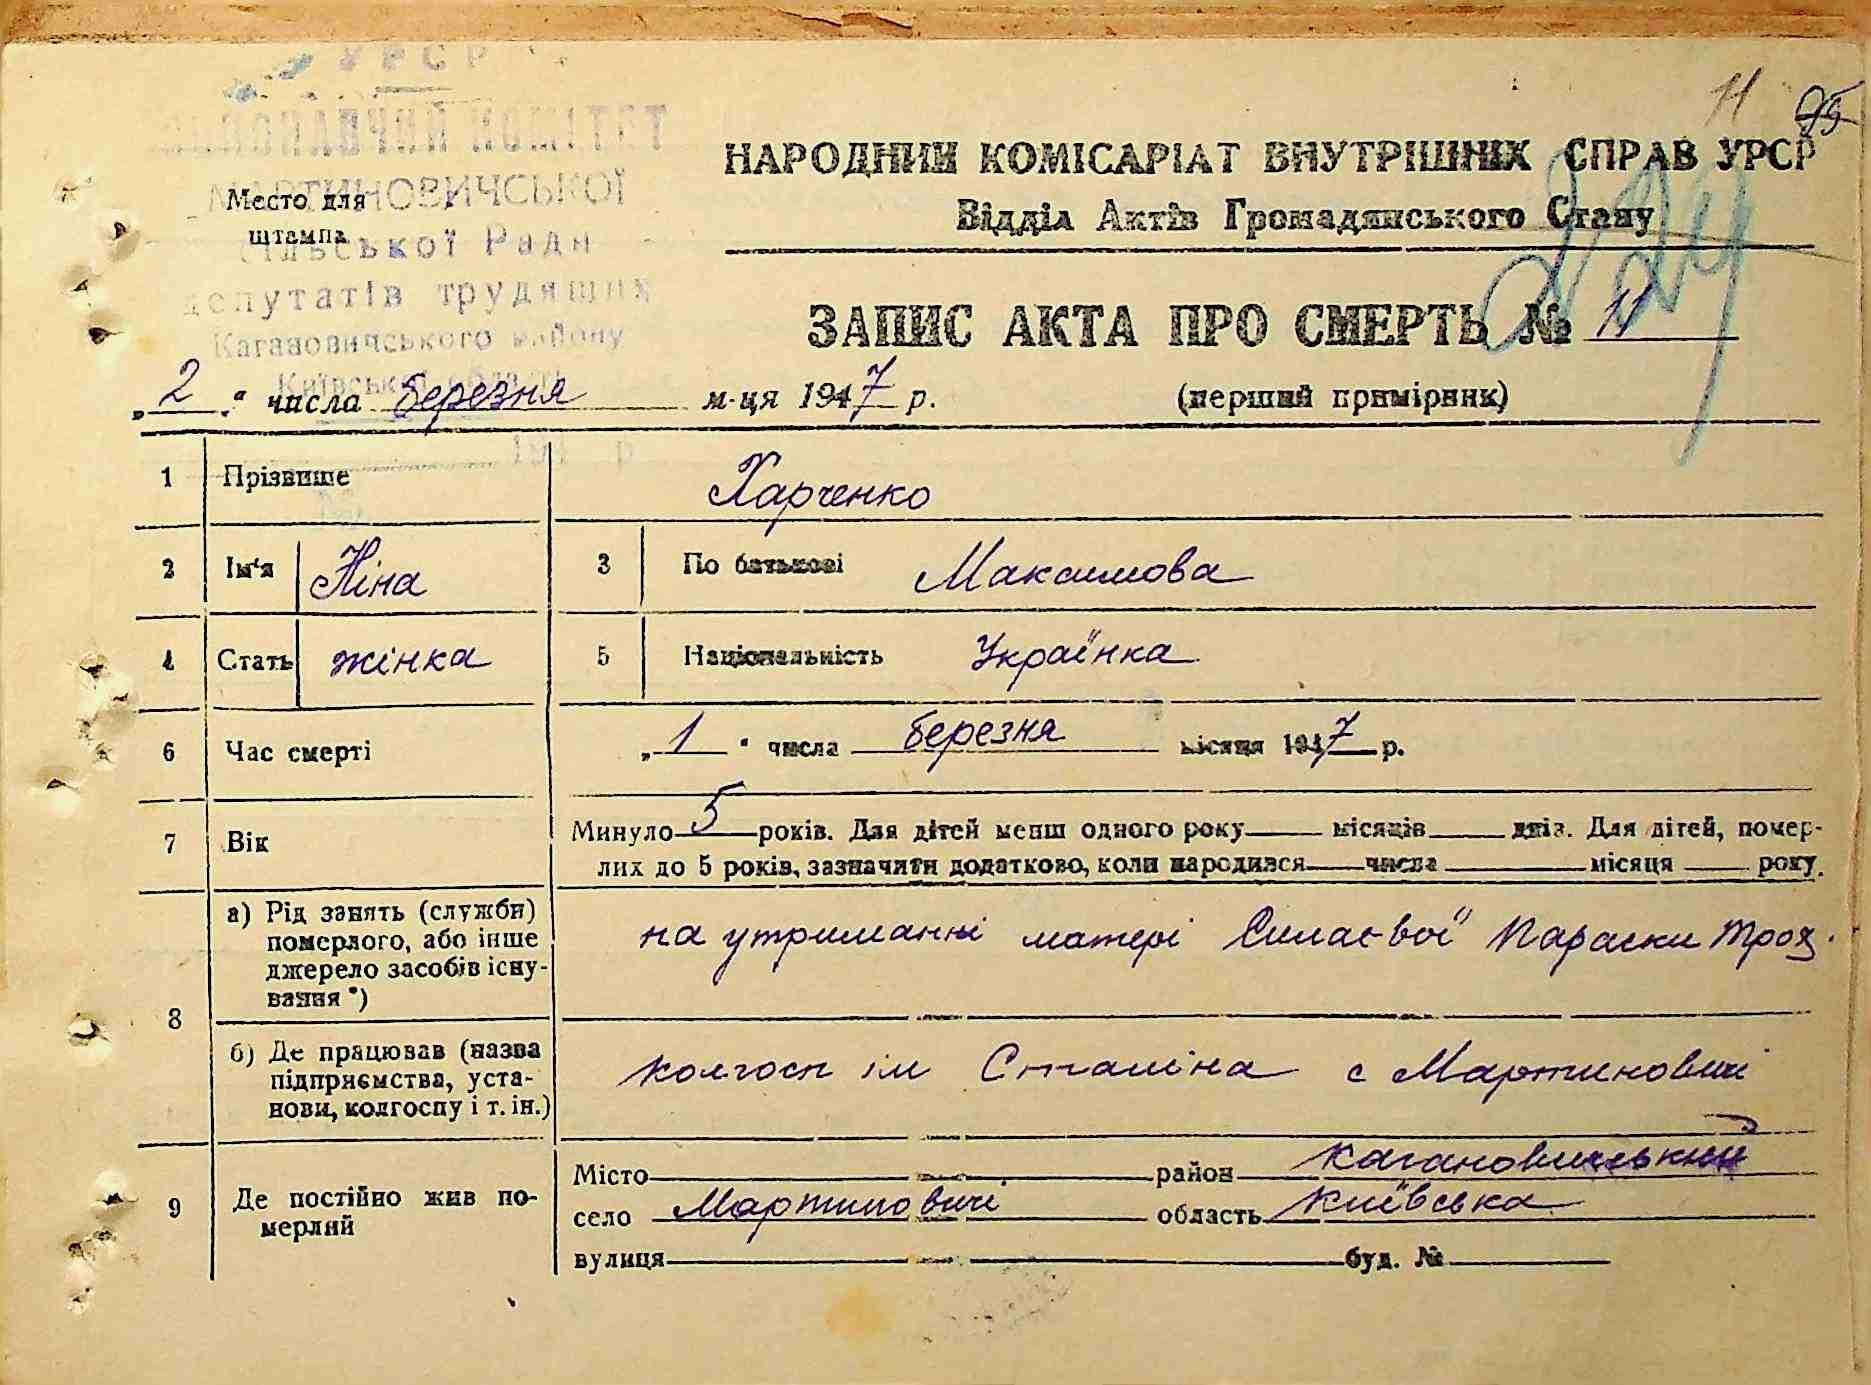 УРСР
ВИКОНАВЧИЙ КОМІТЕТ
МАРТИНОВИЧСЬКОЇ
Сільської Ради
депутатів трудящих
Кагановичського району
Київської області
194 р
Место для
штампа
11 95
НАРОДНИЙ КОМІСАРІАТ ВНУТРІШНІХ СПРАВ УРСР
Відділ Актів Громадянського Стану
224
ЗАПИС АКТА ПРО СМЕРТЬ № 11
„2“ числа березня м-ця 1947 р. (перший примірник)
1 Прізвище Харченко
2 Ім'я Ніна 3 По батькові Максимова
4 Стать жінка 5 Національність Українка
6 Час смерті „1“ числа березня місяця 1947 р.
7 Вік Минуло 5 років. Для дітей менш одного року місяців днів. Для дітей, помер-
лих до 5 років, зазначити додатково, коли народився числа місяця року.
8 а) Рід занять (служби)
померлого, або інше
джерело засобів існу-
вання *)
на утриманні матері Параски Трох.
б) Де працював (назва
підприємства, уста-
нови, колгоспу і т. ін.)
колгосп ім Сталіна с Мартиновичі
9 Де постійно жив по-
мерлий
Місто район Кагановичський
село Мартиновичі область Київська
вулиця буд. №